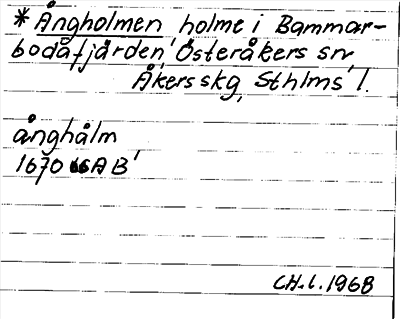 * Ångholmen holme i Bammar-
bodafjärden, Österåkers sn
Åkers skg, Sthlms l.
ånghålm
1670 AB
CH.l.1968